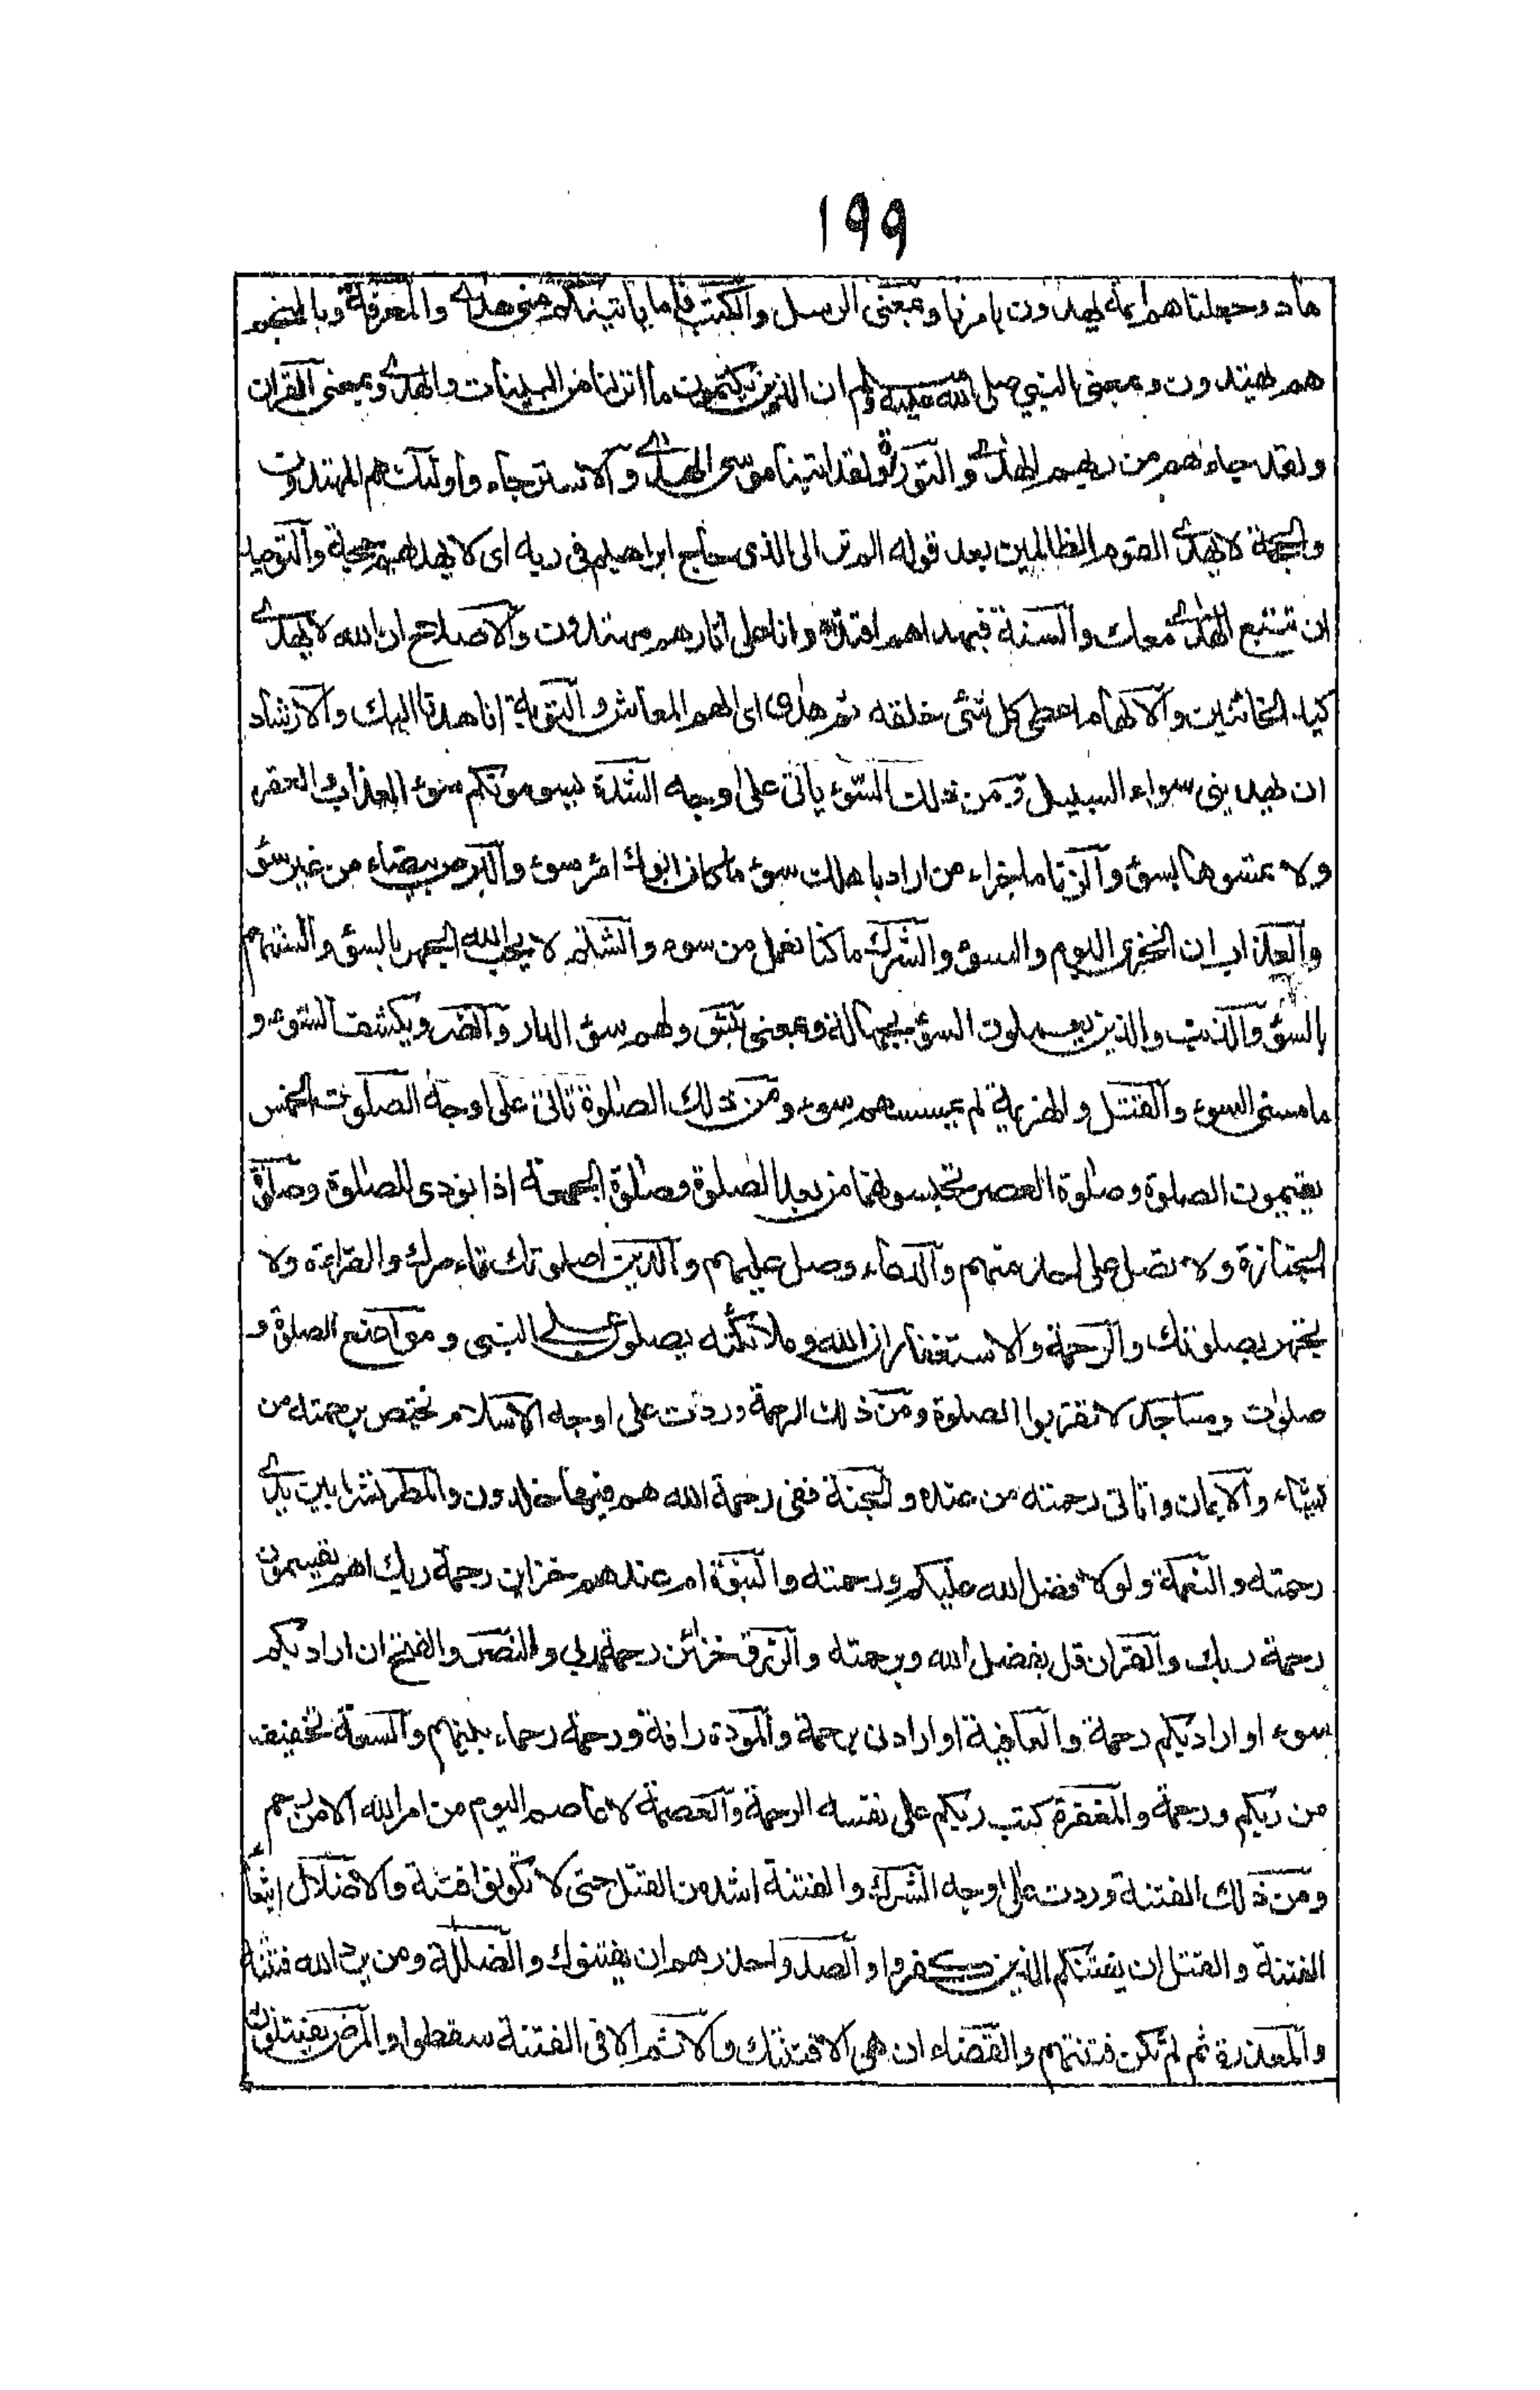 ١٩٩
هاد وجعلناهم ايمة يهدون بامرنا وبمعنى الرسل والكتب فاما ياتينكم منى هدى والمعرفة وبالنجم
هم يهتدون وبمعنى النبي صلى الله عليه وسلم ان الذين يكتمون ما انزلنا من البينات والهدى وبمعنى القران
ولقد جاءهم من ربهم الهدى والتورة ولقد اتينا موسى الهدى والاسترجاء واولئك هم المهتدون
والحجة لا يهدى القوم الظالمين بعد قوله الم تر الى الذى حاج ابراهيم فى ربه اى لا يهديهم حجة والتوحيد
ان نتبع الهدى معك والسنة فبهداهم اقتده وانا على اثارهم مهتدون والاصلاح ان الله لا يهدى
كيد الخائنين والالهام اعطى كل شئ خلقه ثم هدى اى الهم المعاش والتوبة انا هدنا اليك والارشاد
ان يهدينى سواء السبيل ومن ذلك السوء ياتى على اوجه الشدة يسومونكم سوء العذاب والعقر
ولا تمسوها بسوء والزنا ما جزاء من اراد باهلك سوء ما كان ابوك امرء سوء والبرص بيضاء من غير سوء
والعذاب ان الخزى اليوم والسوء والشرك ما كنا نعمل من سوء والشتم لا يحب الله الجهر بالسوء والسنتهم
بالسوء والذنب والذين يعملون السوء بجهالة وبمعنى بئس ولهم سوء الدار والضر ويكشف السوء و
ما مسنى السوء والقتل والهزيمة لم يمسسهم سوء ومن ذلك الصلوة تاتى على اوجه الصلوت الخمس
يقيمون الصلوة وصلوة العصر تحبسونهما من بعد الصلوة وصلوة الجمعة اذا نودى للصلوة وصلوة
الجنازة ولا تصل على احد منهم والدعاء وصل عليهم والدين اصلوتك تامرك والقراءة ولا
تجهر بصلوتك والرحمة والاستغفار ان الله وملائكته يصلون على النبى ومواضع الصلوة و
صلوات ومساجد لا تقربوا الصلوة ومن ذلك الرحمة وردت على اوجه الاسلام يختص برحمته من
يشاء والايمان واتانى رحمته من عنده والجنة ففى رحمة الله هم فيها خلدون والمطر نشرا بين يدى
رحمته والنعمة ولولا فضل الله عليكم ورحمته والنبوة ام عندهم خزاين رحمة ربك اهم يقسمون
رحمة ربك والقران قل بفضل الله وبرحمته والرزق خزائن رحمة ربى والنصر والفتح ان اراد بكم
سوء او اراد بكم رحمة والعافية او ارادنى برحمة والمودة رافة ورحمة رحماء بينهم والسعة تخفيف
من ربكم ورحمة والمغفرة كتب ربكم على نفسه الرحمة والعصمة لا عاصم اليوم من امر الله الا من رحم
ومن ذلك الفتنة وردت على اوجه الشرك والفتنة اشد من القتل حتى لا تكون فتنة والاضلال ابتغاء
الفتنة والقتل ان يفتنكم الذين كفروا والصد واحذرهم ان يفتنوك والضلالة ومن يرد الله فتنته
والمعذرة ثم لم تكن فتنتهم والقضاء ان هى الا فتنتك والاثم الا فى الفتنة سقطوا والمرض يفتنون